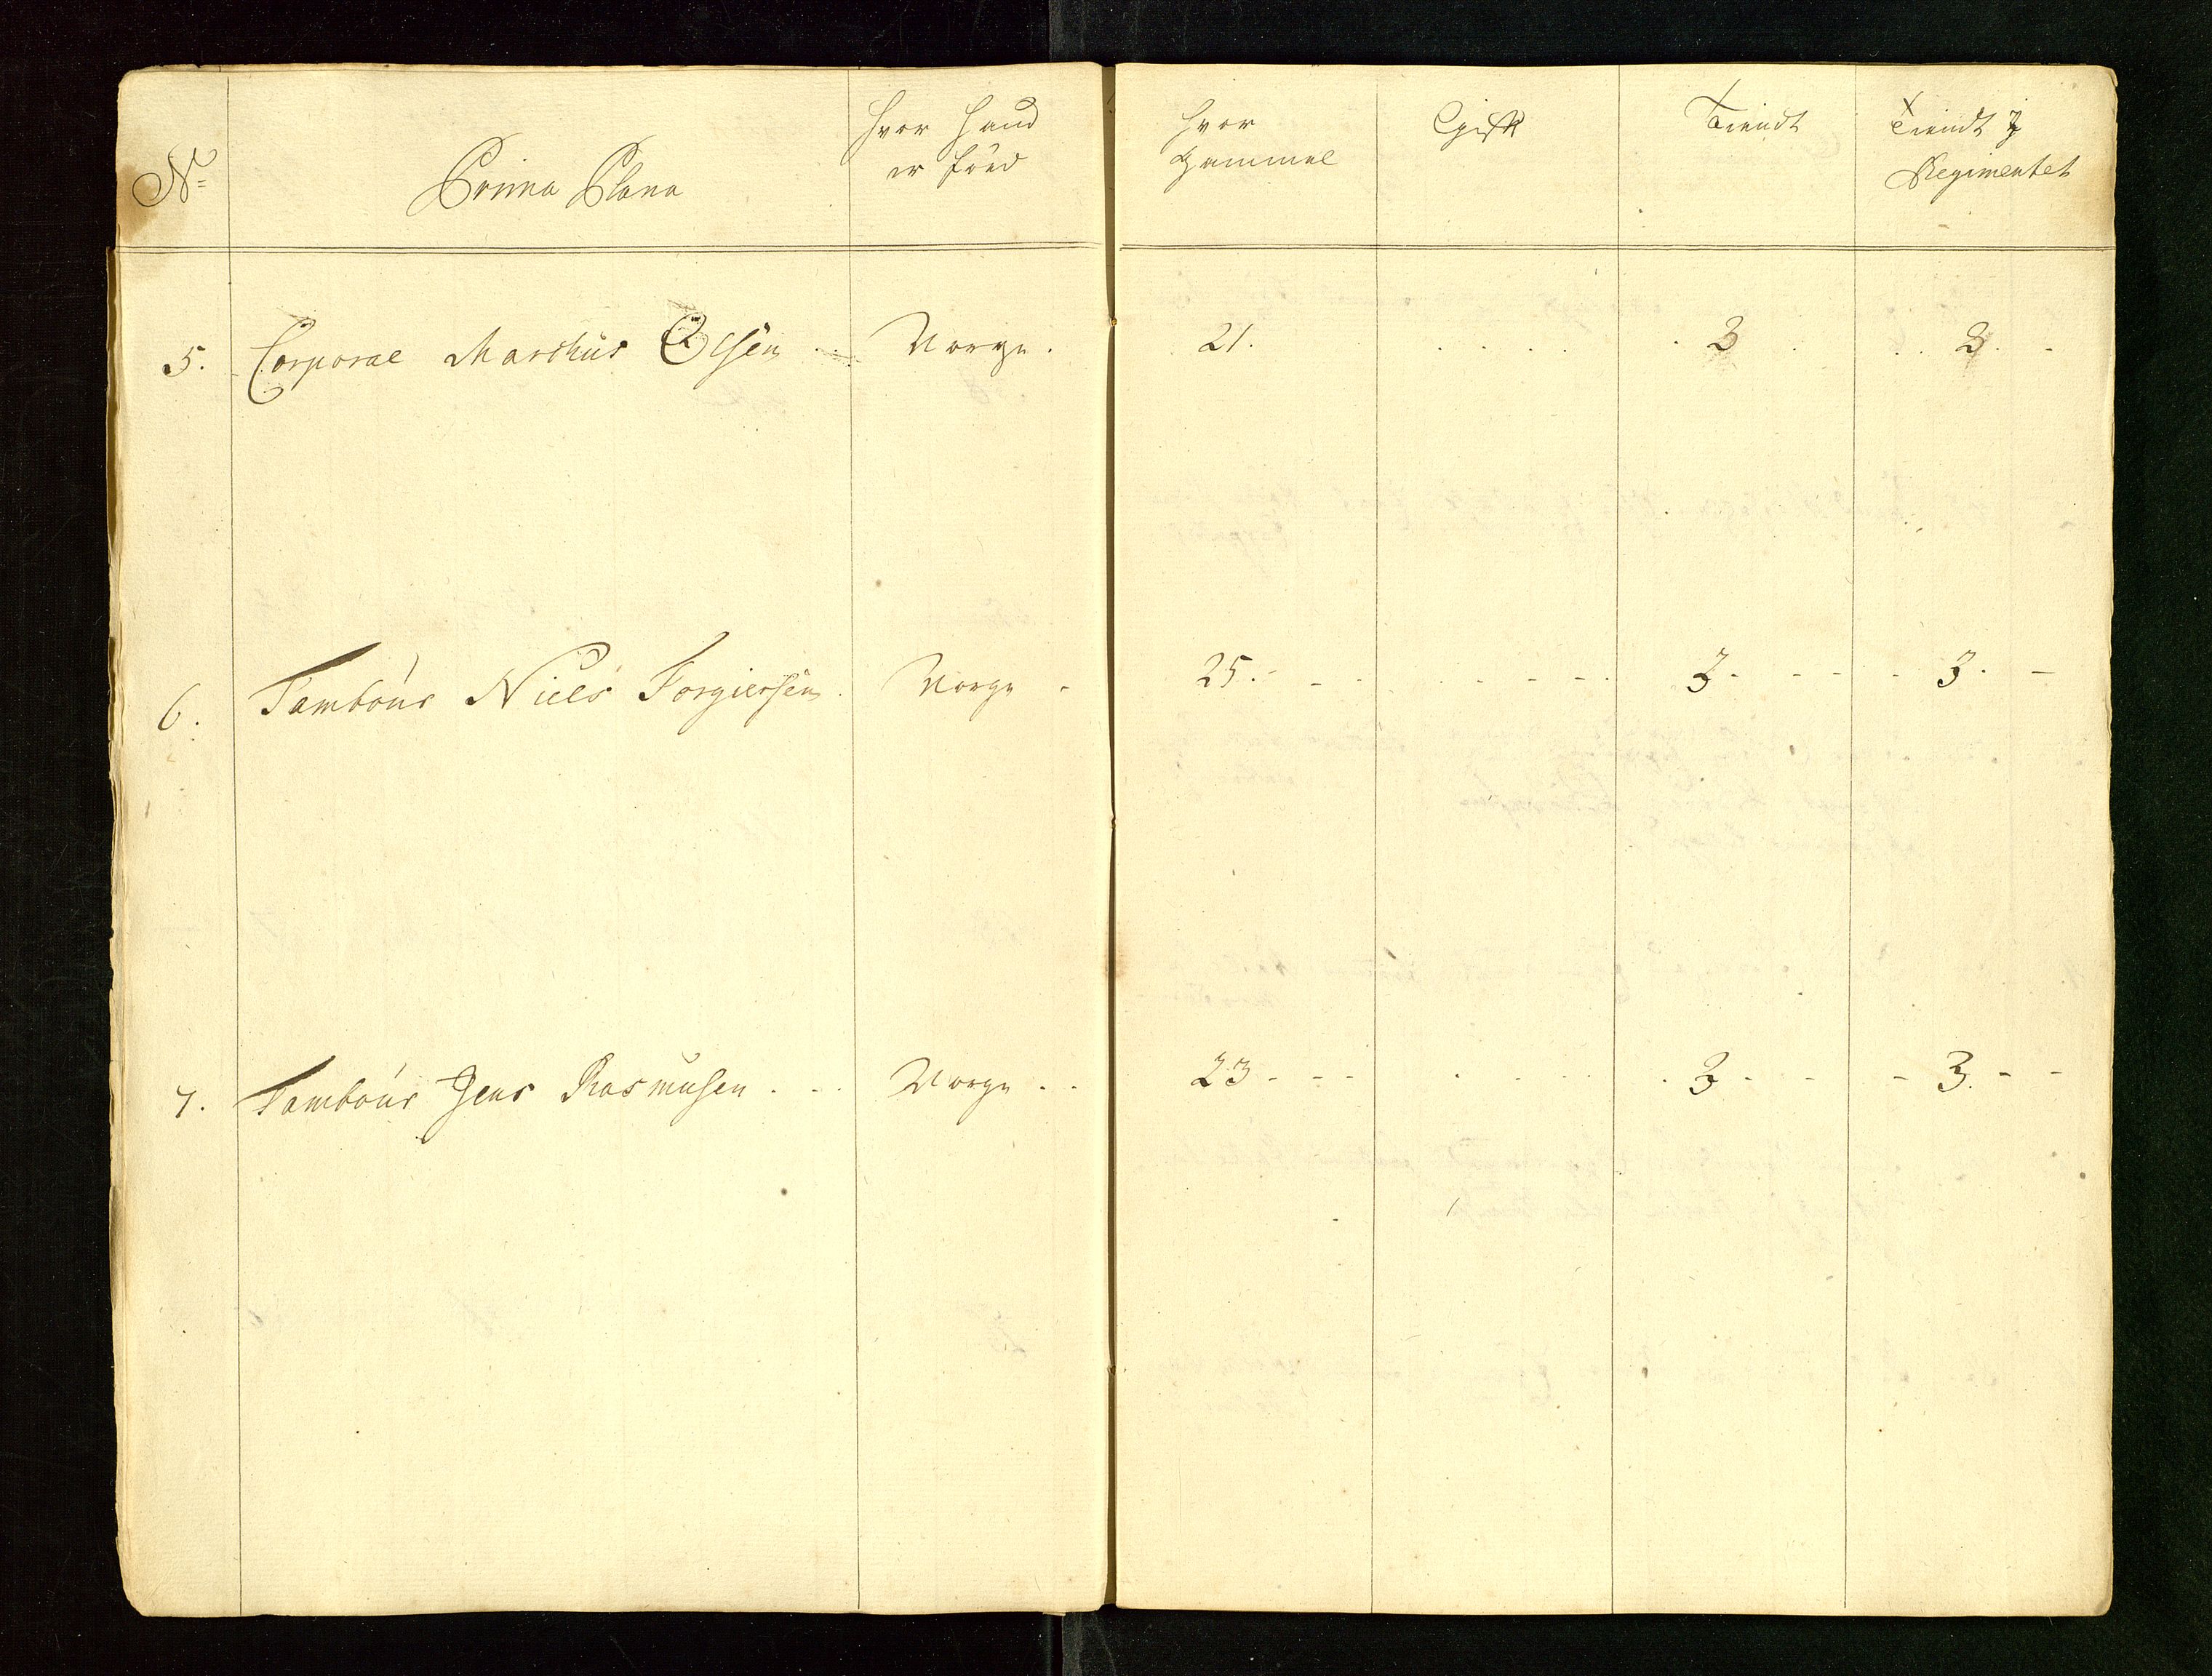 No
Prima Plana
hvor hand
er föed
hvor
gammel
Gift
Tiendt
Tiendt j
Regimentet
5. Corporal Marchus Olsen Norge. 21. 3 3
6. Tambour Niels Torgiersen. Norge 25. 3. 3.
7. Tambour Jens Rasmusen Norge 23 3 3.